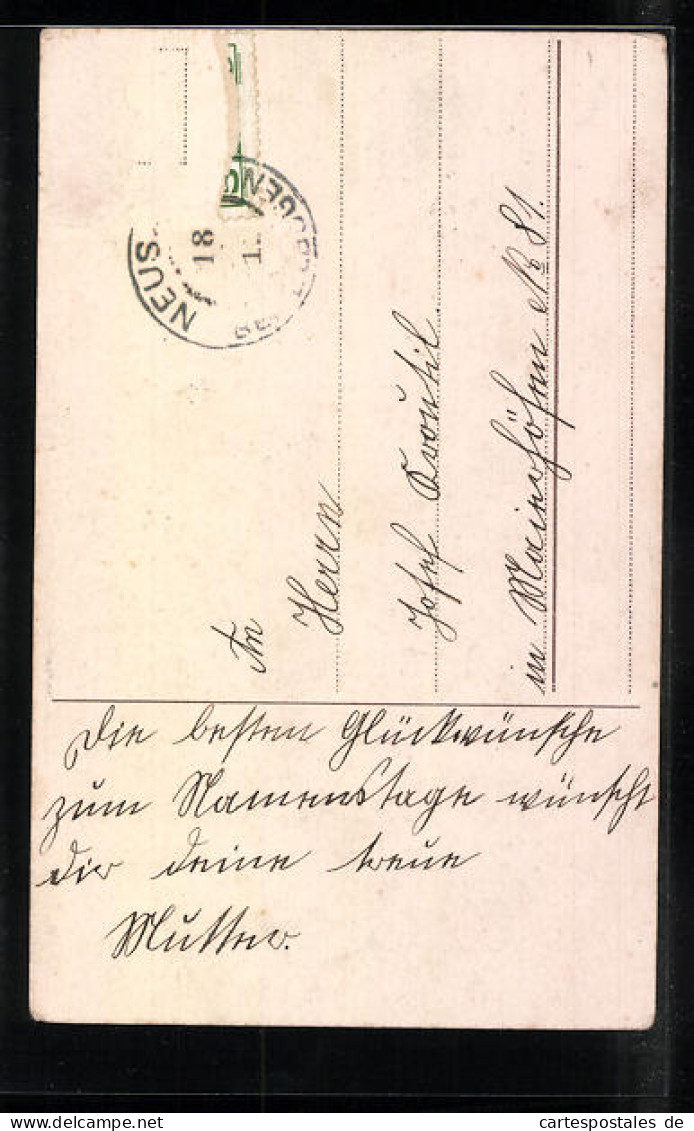 NEUS
18
An
Herrn
Josef
in № 81.
Die besten Glückwünsche
zum Namenstage wünscht
dir deine treue
Mutter.
cartespostales de